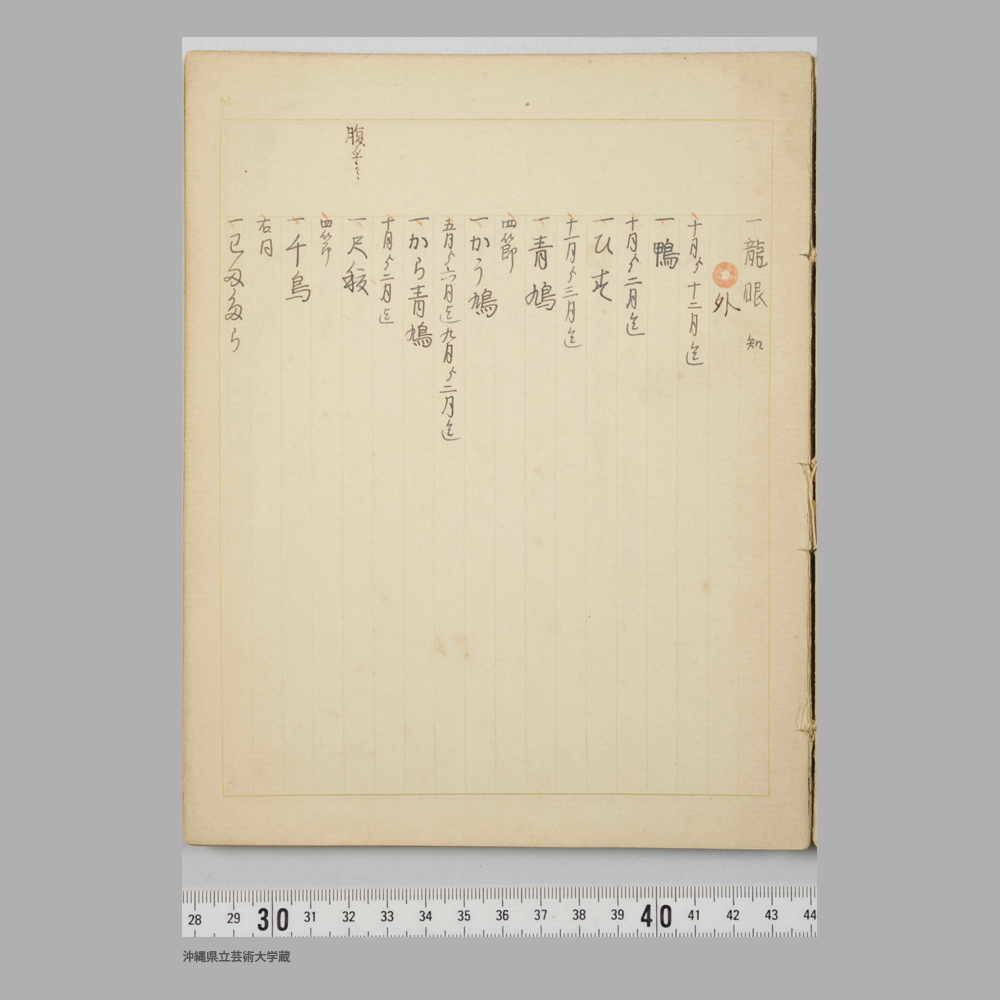 一 龍眼 知
外
十月ゟ十二月迄
一 鴨
十月ゟ二月迄
一 ひす
十一月ゟ三月迄
一 青鳩
四節
一 かう鳩
五月ゟ六月迄九月ゟ二月迄
一 から青鳩
十月ゟ二月迄
一 尺
腹
四節
一 千鳥
右同
一
No.
28 29 30 31 32 33 34 35 36 37 38 39 40 41 42 43 44
沖縄県立芸術大学蔵